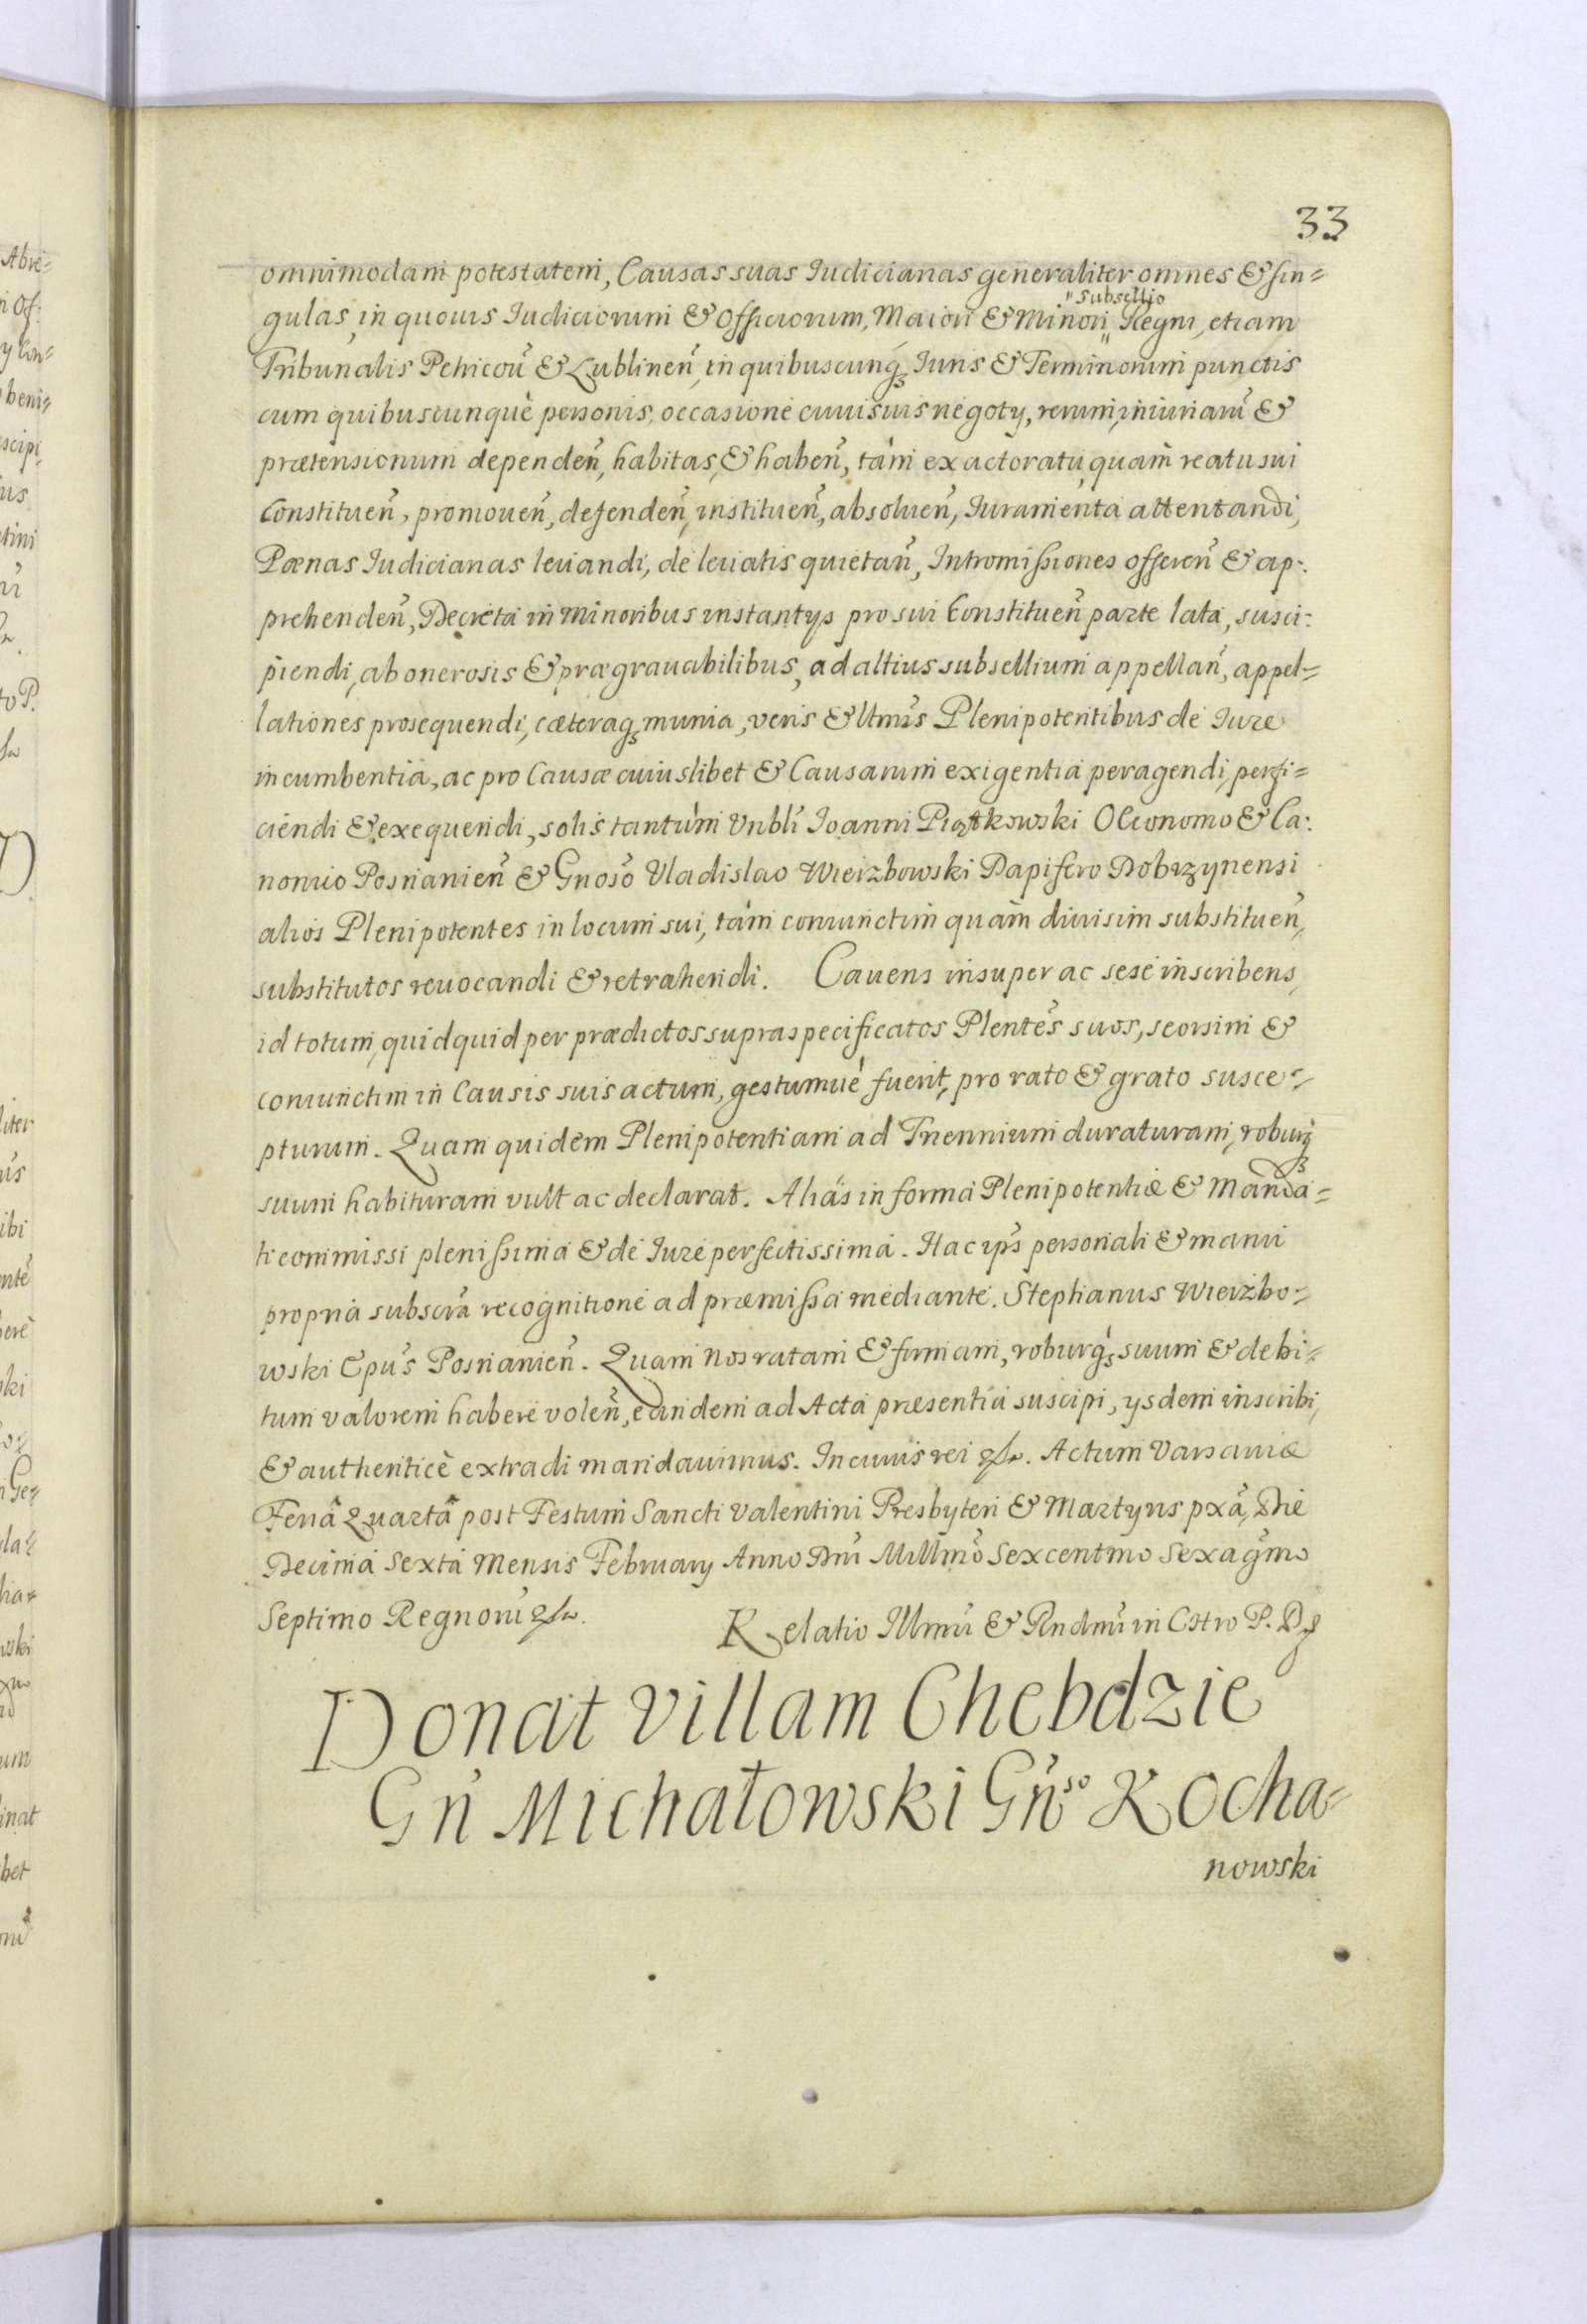 33
omnimodam potestatem, Causas suas Iudiciarias generaliter omnes & sin=
gulas, in quovis Iudiciorum & Officiorum, Maiori & Minori " subsellio " Regni, etiam
Tribunalis Petricoú & Lublineñ, in quibuscunq, Iuris & Terminorum punctis
cum quibuscunquè personis, occasione cuiusvis negoty, rerum, iniuriarú &
prætensionum dependeñ, habitas, & habeñ, tàm ex actoratu, quàm reatu sui
Constitueñ, promoueñ, defendeñ, instituẽn, absolueñ, Iuramenta attentandi,
Pœnas Iudiciarias leuandi, de leuatis quietañ, Intromissiones offereñ & ap:
prehendeñ, Decreta in Minoribus instantys pro sui Constitueñ parte lata, susci:
piendi, ab onerosis & prægrauabilibus, ad altius subsellium appellañ, appel=
lationes prosequendi, cæteraq, munia, veris & lltmis Plenipotentibus de Iure
incumbentia, ac pro Causæ cuiuslibet & Causarum exigentia peragendi, perfi=
ciendi & exequendi, solis tantùm Vnbli Ioanni Piątkowski Oeconomo & Ca:
nonico Posnanieñ & Gnoso Vladislao Wierzbowski Dapifero Dobrzynensi
alios Plenipotentes in locum sui, tàm coniunctim quàm diuisim substitueñ,
substitutos reuocandi & retrahendi. Cauens insuper ac sese inscribens,
id totum, quidquid per prædictos supraspecificatos Plentes suos, seorsim &
coniunctim in Causis suis actum, gestumuè fuerit, pro rato & grato susce=
pturum. Quam quidem Plenipotentiam ad Triennium duraturam, roburq
suum habituram vult ac declarat. Aliàs in forma Plenipotentiæ & Manda=
ti commissi plenissima & de Iure perfectissima. Hac ips personali & manu
propria subscra recognitione ad præmissa mediante. Stephanus Wierzbo=
wski Epus Posnanieñ. Quam Nos ratam & firmam, roburq, suum & debi=
tum valorem habere voleñ, eandem ad Acta præsentia suscipi, ysdem inscribi,
& authenticè extradi mandauimus. In cuius rei &. Actum Varsauiæ
Feriâ Quartâ post Festum Sancti Valentini Presbyteri & Martyris pxâ, Die
Decima Sexta Mensis February Anno Dni Millmo Sexcentmo Sexagmo
Septimo Regnorú &.
Relatio Illmi & Rndmi in Chro P. D
Donat Villam Chebdzie
Gń Michałowski Gńso Kocha=
nowski